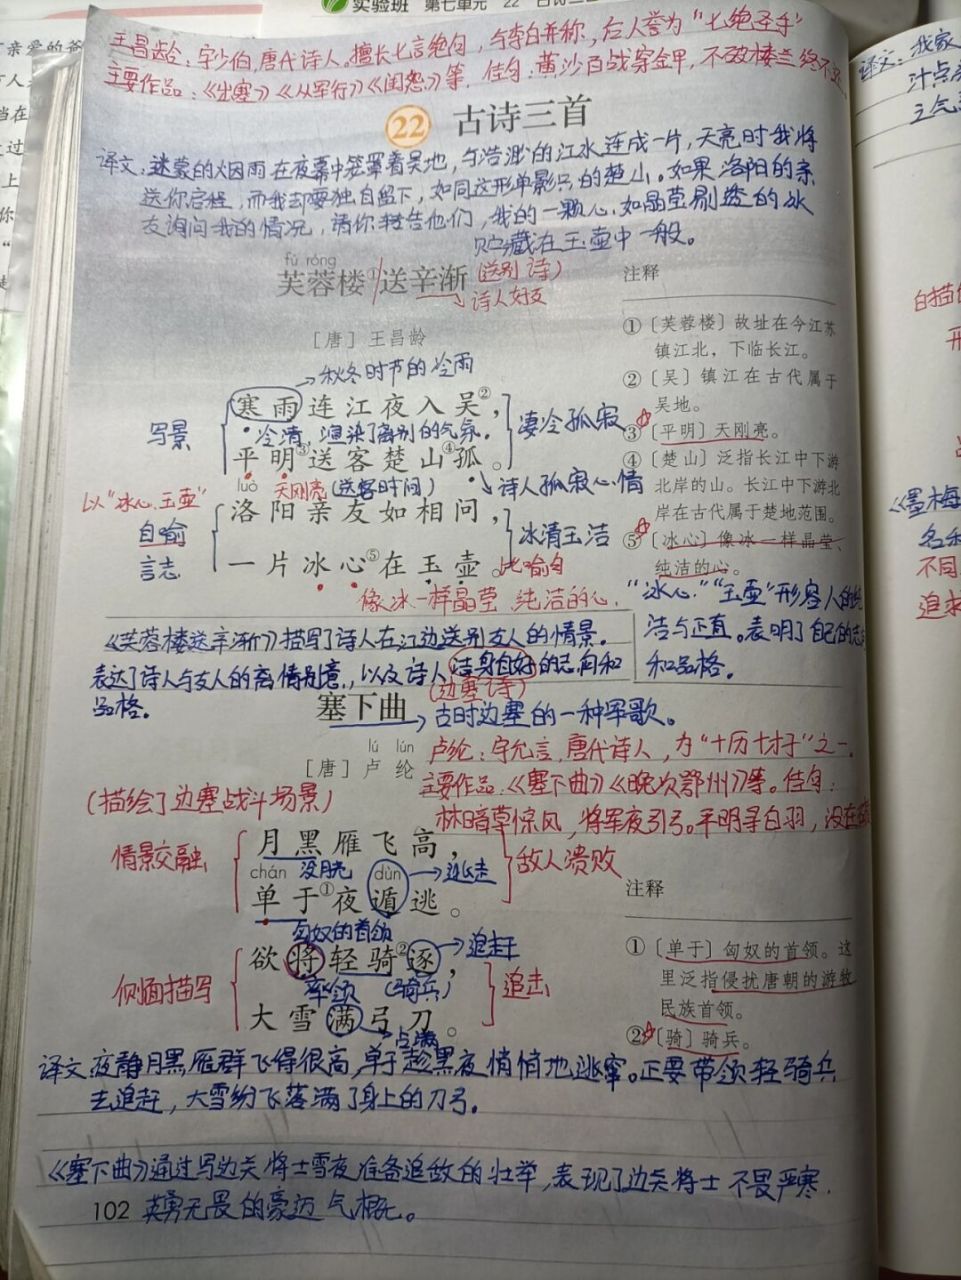 实验班 第七单元 22 古诗三首
王昌龄：字少伯，唐代诗人。擅长七言绝句，与李白并称，后人誉为“七绝圣手”
主要作品：《出塞》《从军行》《闺怨》等。佳句：黄沙百战穿金甲，不破楼兰终不
22 古诗三首
译文：迷蒙的烟雨在夜幕中笼罩着吴地，与浩渺的江水连成一片，天亮时我将
送你启程，而我却要独自留下，如同这形单影只的楚山。如果洛阳的亲
友询问我的情况，请你转告他们，我的一颗心，如晶莹剔透的冰
贮藏在玉壶中一般。
fú róng
芙蓉楼①送辛渐 (送别诗)
诗人好友
[唐] 王昌龄
秋冬时节的冷雨
写景
寒雨连江夜入吴②，
冷清，渲染了离别的气氛。
凄冷孤寂
平明③送客楚山④孤。
luò 天刚亮(送客时间)
诗人孤寂心情
以“冰心、玉壶”
自喻
言志
洛阳亲友如相问，
冰清玉洁
一片冰心⑤在玉壶。 比喻句
像冰一样晶莹、纯洁的心.
注释
①〔芙蓉楼〕故址在今江苏
镇江北，下临长江。
②〔吴〕镇江在古代属于
吴地。
③〔平明〕天刚亮。
④〔楚山〕泛指长江中下游
北岸的山。长江中下游北
岸在古代属于楚地范围。
⑤〔冰心〕像冰一样晶莹、
纯洁的心。
“冰心”“玉壶”形容人的纯
洁与正直。表明了自己的志
和品格。
《芙蓉楼送辛渐》描写了诗人在江边送别友人的情景.
表达了诗人与友人的离情别意，以及诗人洁身自好的志向和
品格。
(边塞诗)
塞下曲 古时边塞的一种军歌。
lú lún
[唐] 卢纶
卢纶：字允言，唐代诗人，为“十历十才子”之一.
主要作品：《塞下曲》《晚次鄂州》等。佳句：
林暗草惊风，将军夜引弓。平明寻白羽，没在
(描绘了边塞战斗场景)
情景交融
月黑雁飞高，
chán 没月光 dùn 逃走
敌人溃败
单于①夜遁逃。
匈奴的首领
侧面描写
欲将轻骑②逐，
追赶
率领 (骑兵)
追击
大雪满弓刀。
占满
注释
①〔单于〕匈奴的首领。这
里泛指侵扰唐朝的游牧
民族首领。
②〔骑〕骑兵。
译文：夜静月黑雁群飞得很高，单于趁黑夜悄悄地逃窜。正要带领轻骑兵
去追赶，大雪纷飞落满了身上的刀弓。
《塞下曲》通过写边关将士雪夜准备追敌的壮举，表现了边关将士不畏严寒.
英勇无畏的豪迈气概。
102
译文：我家
汁点
之气
白描
《墨梅
名利
不同
追求